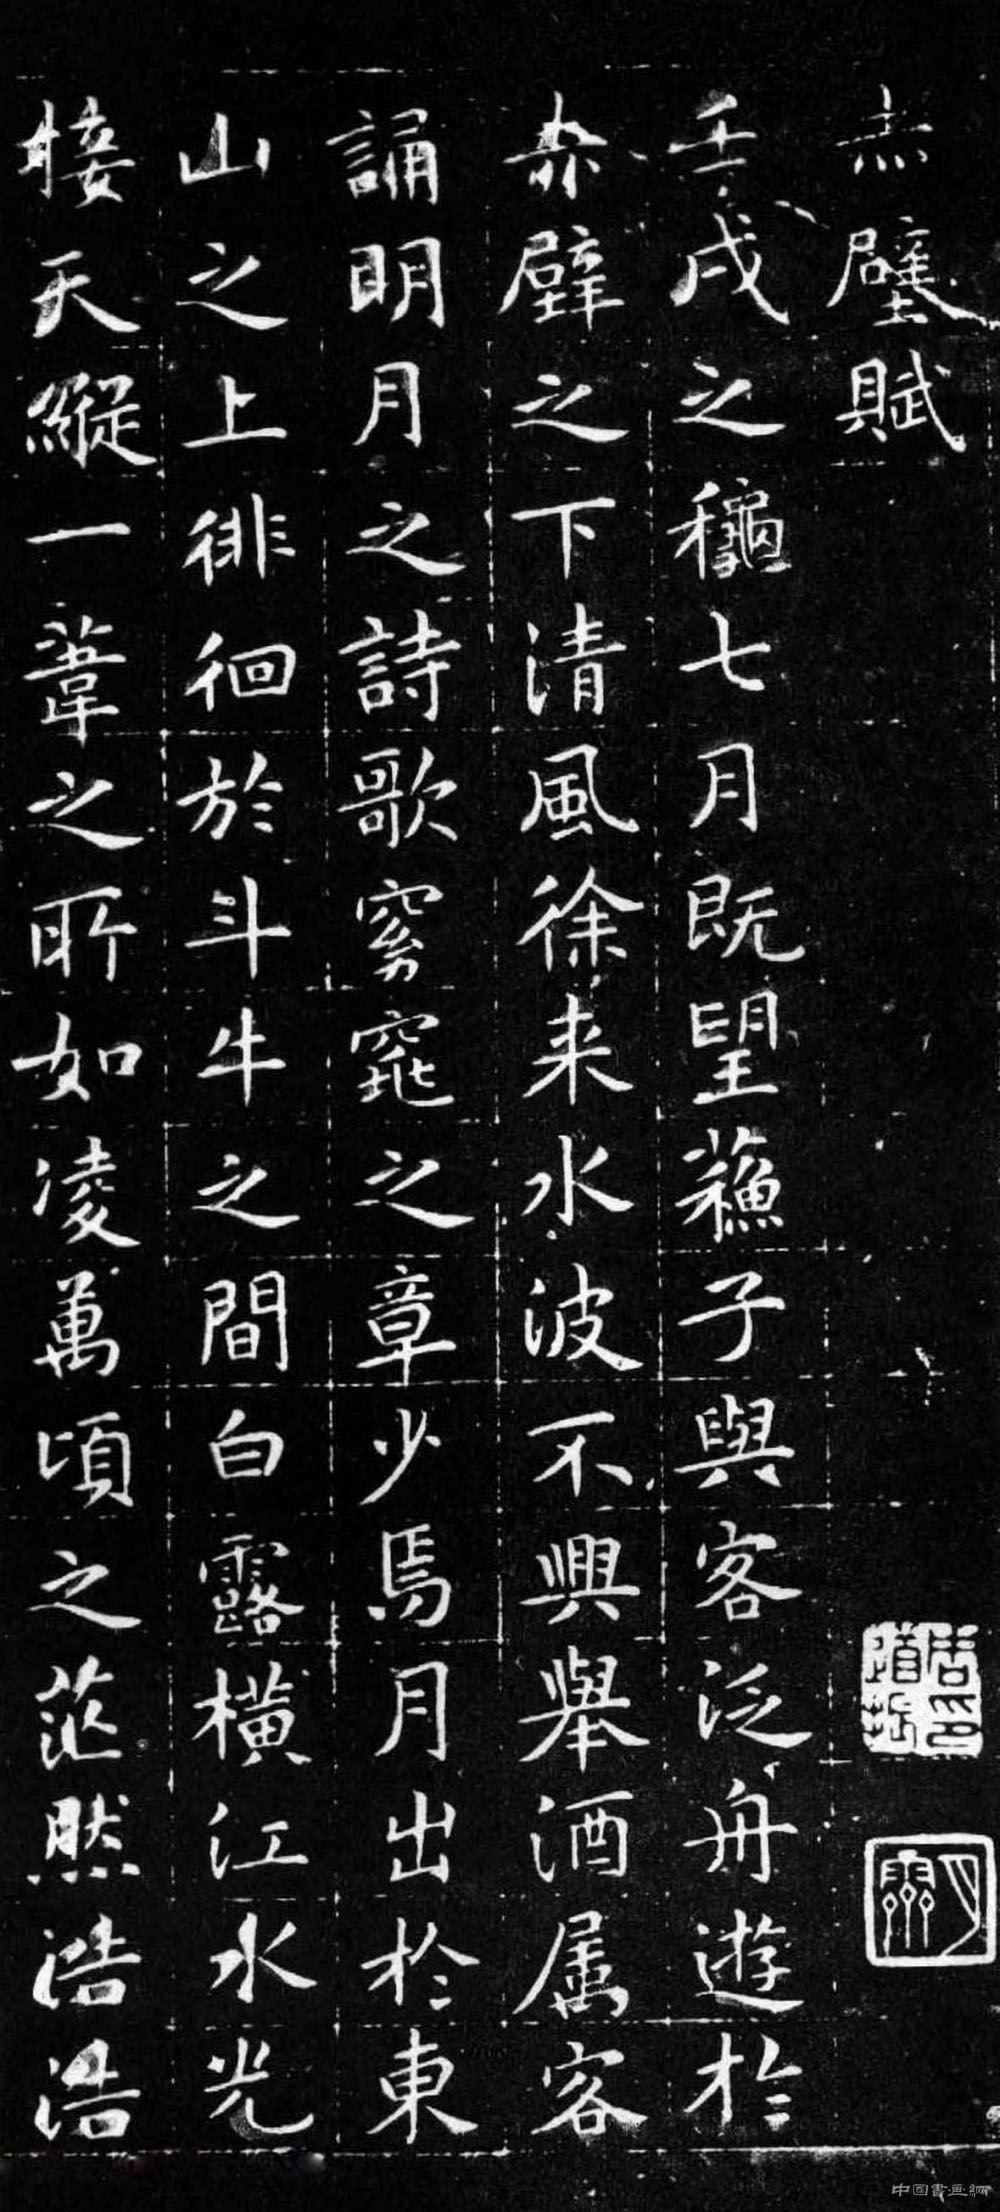 赤壁賦
壬戌之龝七月既望蘓子與客泛舟遊於
赤壁之下清風徐来水波不興舉酒属客
誦明月之詩歌窈窕之章少焉月出於東
山之上徘徊於斗牛之間白露橫江水光
接天縱一葦之所如凌萬頃之茫然浩浩
中国書画網